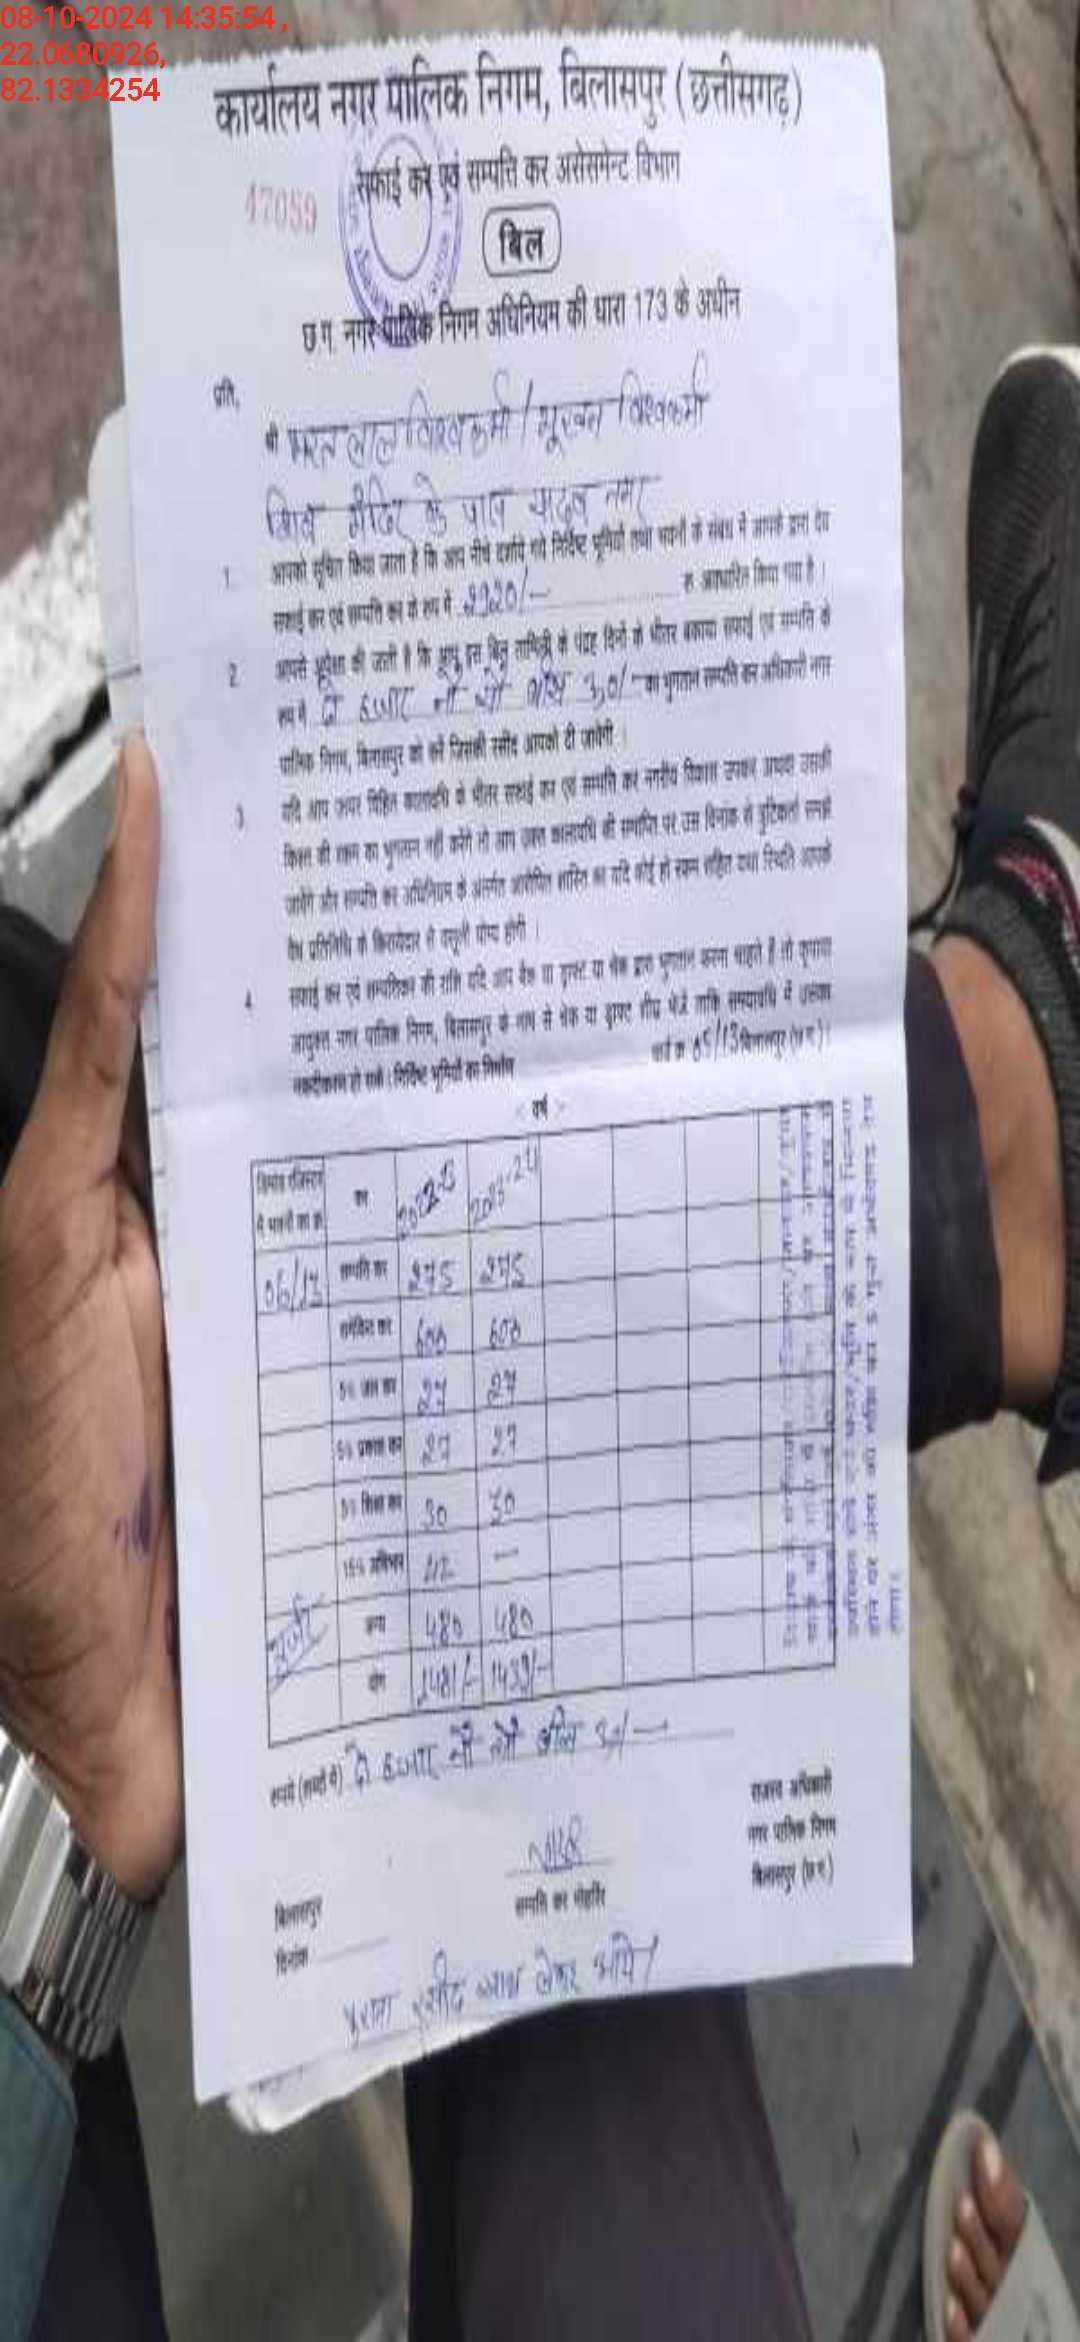 08-10-2024 14:35:54,
22.0680926,
82.1334254
कार्यालय नगर पालिक निगम, बिलासपुर (छत्तीसगढ़)
सफाई कर एवं सम्पत्ति कर असेसमेन्ट विभाग
47059
बिल
छ.ग. नगर पालिक निगम अधिनियम की धारा 173 के अधीन
प्रति,
श्री विश्वकर्मा / विश्वकर्मा
शिव मंदिर के पास यादव नगर
1. आपको सूचित किया जाता है कि आप नीचे दर्शाये गये निर्दिष्ट भूमियों तथा भवनों के संबंध में आपके द्वारा देय
सफाई कर एवं सम्पत्ति कर के रूप में 2920/- रु. अवधारित किया गया है ।
2. आपसे अपेक्षा की जाती है कि आप इस बिल तामिली के पंद्रह दिनों के भीतर बकाया सफाई एवं सम्पत्ति के
रूप में दो हजार नौ सौ बीस रू0/- का भुगतान सम्पत्ति कर अधिकारी नगर
पालिक निगम, बिलासपुर को करें जिसकी रसीद आपको दी जावेगी ।
3. यदि आप ऊपर विहित कालावधि के भीतर सफाई कर एवं सम्पत्ति कर नगरीय विकास उपकर अथवा उसकी
किश्त की रकम का भुगतान नहीं करेंगे तो आप उक्त कालावधि की समाप्ति पर उस दिनांक से त्रुटिकर्ता समझे
जावेंगे और सम्पत्ति कर अधिनियम के अंतर्गत आरोपित शास्ति का यदि कोई हो रकम सहित यथा स्थिति आपके
वैध प्रतिनिधि के किरायेदार से वसूली योग्य होगी ।
4. सफाई कर एवं सम्पत्तिकर की राशि यदि आप बैंक या ड्राफ्ट या चेक द्वारा भुगतान करना चाहते हैं तो कृपया
आयुक्त नगर पालिक निगम, बिलासपुर के नाम से चेक या ड्राफ्ट शीघ्र भेजें ताकि समयावधि में उसका
नकदीकरण हो सके । निर्दिष्ट भूमियों का निर्धारण वार्ड क्र. 05/13 बिलासपुर (छ.ग.)
< वर्ष >
डिमांड रजिस्टर में भवनों का क्र. कर 2022-23 2023-24
06/13 सम्पत्ति कर 275 275
समेकित कर 600 600
5% जल कर 27 27
5% प्रकाश कर 27 27
5% शिक्षा कर 30 30
15% अधिभार 42 —
अन्य 480 480
योग 1481/- 1439/-
रूपये (शब्दों में) दो हजार नौ सौ बीस रू/-
राजस्व अधिकारी
नगर पालिक निगम
बिलासपुर (छ.ग.)
सम्पत्ति कर मोहर्रिर
बिलासपुर
दिनांक
पुराना रसीद साथ लेकर आये।